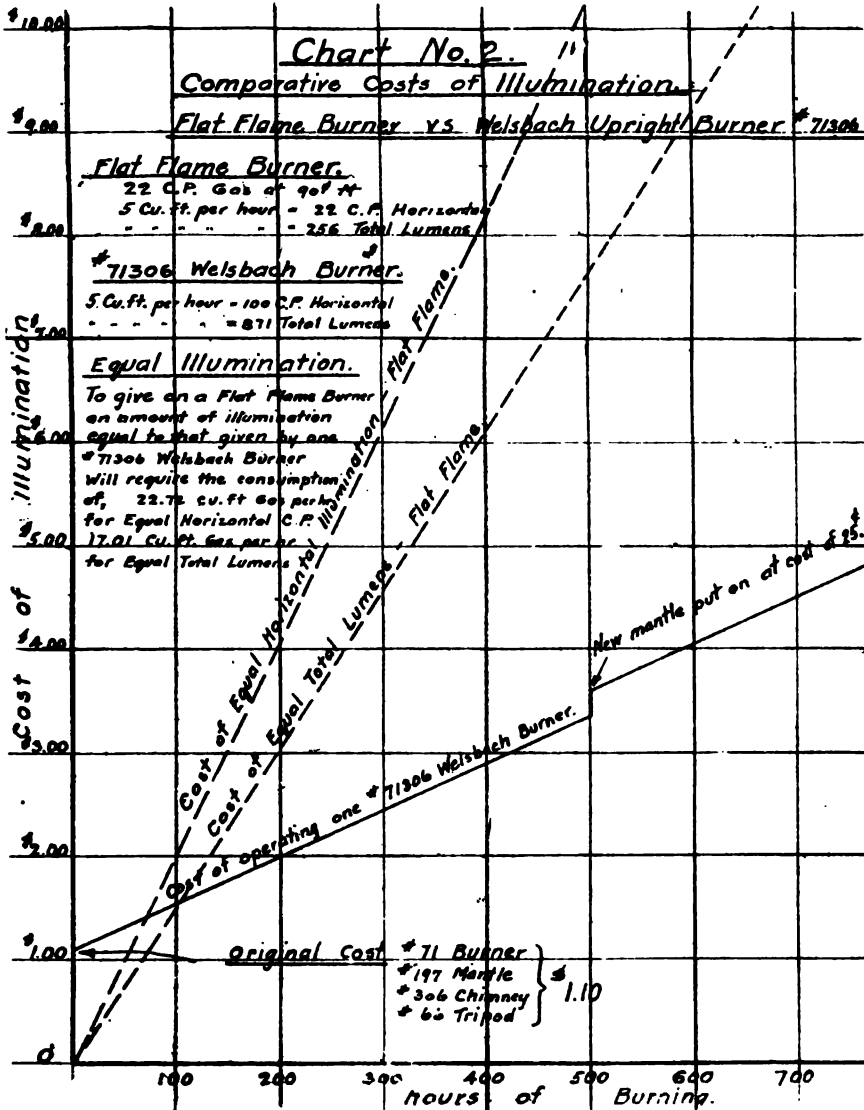 Chart No. 2.
Comparative Costs of Illumination.
Flat Flame Burner vs Welsbach Upright Burner #71306
Flat Flame Burner.
22 C.P. Gas at 90¢
5 Cu.ft. per hour = 22 C.P. Horizontal
" " " " = 256 Total Lumens
#71306 Welsbach Burner.
5 Cu.ft. per hour = 100 C.P. Horizontal
" " " " = 871 Total Lumens
Equal Illumination.
To give on a Flat Flame Burner
an amount of illumination
equal to that given by one
#71306 Welsbach Burner
Will require the consumption
of, 22.72 cu.ft Gas per hr
for Equal Horizontal C.P.
17.01 Cu.ft. Gas per hr
for Equal Total Lumens
Cost of Equal Horizontal Illumination Flat Flame.
Cost of Equal Total Lumens - Flat Flame
Cost of operating one #71306 Welsbach Burner.
New mantle put on at cost of 25¢.
Original Cost
#71 Burner
#197 Mantle
#306 Chimney
#66 Tripod
$1.10
Cost of Illumination
$10.00
$9.00
$8.00
$7.00
$6.00
$5.00
$4.00
$3.00
$2.00
$1.00
0
100
200
300
400
500
600
700
hours of Burning.